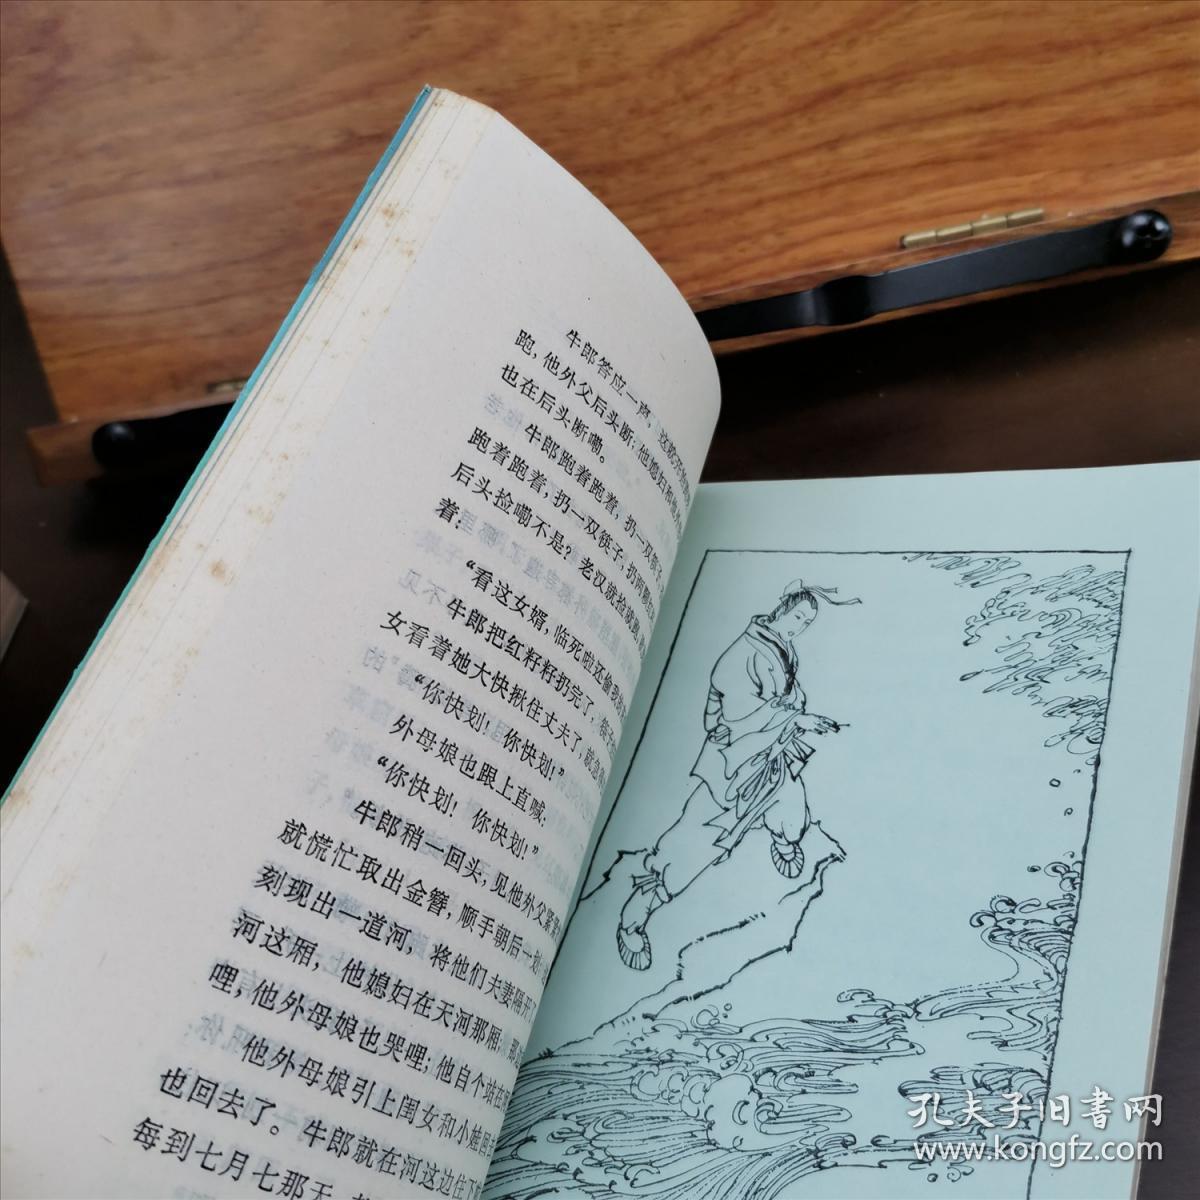 牛郎答应一声，这就开始
跑，他外父后头断；他媳妇和他
也在后头断嘞。
牛郎跑着跑着，扔一双筷
跑着跑着，扔一双筷子，扔两
后头捡嘞不是？老汉就捡
着：
“看这女婿，临死啦还偷
牛郎把红籽籽扔完了，筷子
女看着她大快揪住丈夫了，就急
“你快划！你快划！”
外母娘也跟上直喊：
“你快划！你快划！”
牛郎稍一回头，见他外父紧
就慌忙取出金簪，顺手朝后一划，
刻现出一道河，将他们夫妻隔开
河这厢，他媳妇在天河那厢，那
哩，他外母娘也哭哩；他自个站在
他外母娘引上闺女和小娃回
也回去了。牛郎就在河这边住下
每到七月七那天，
孔夫子旧书网
www.kongfz.com